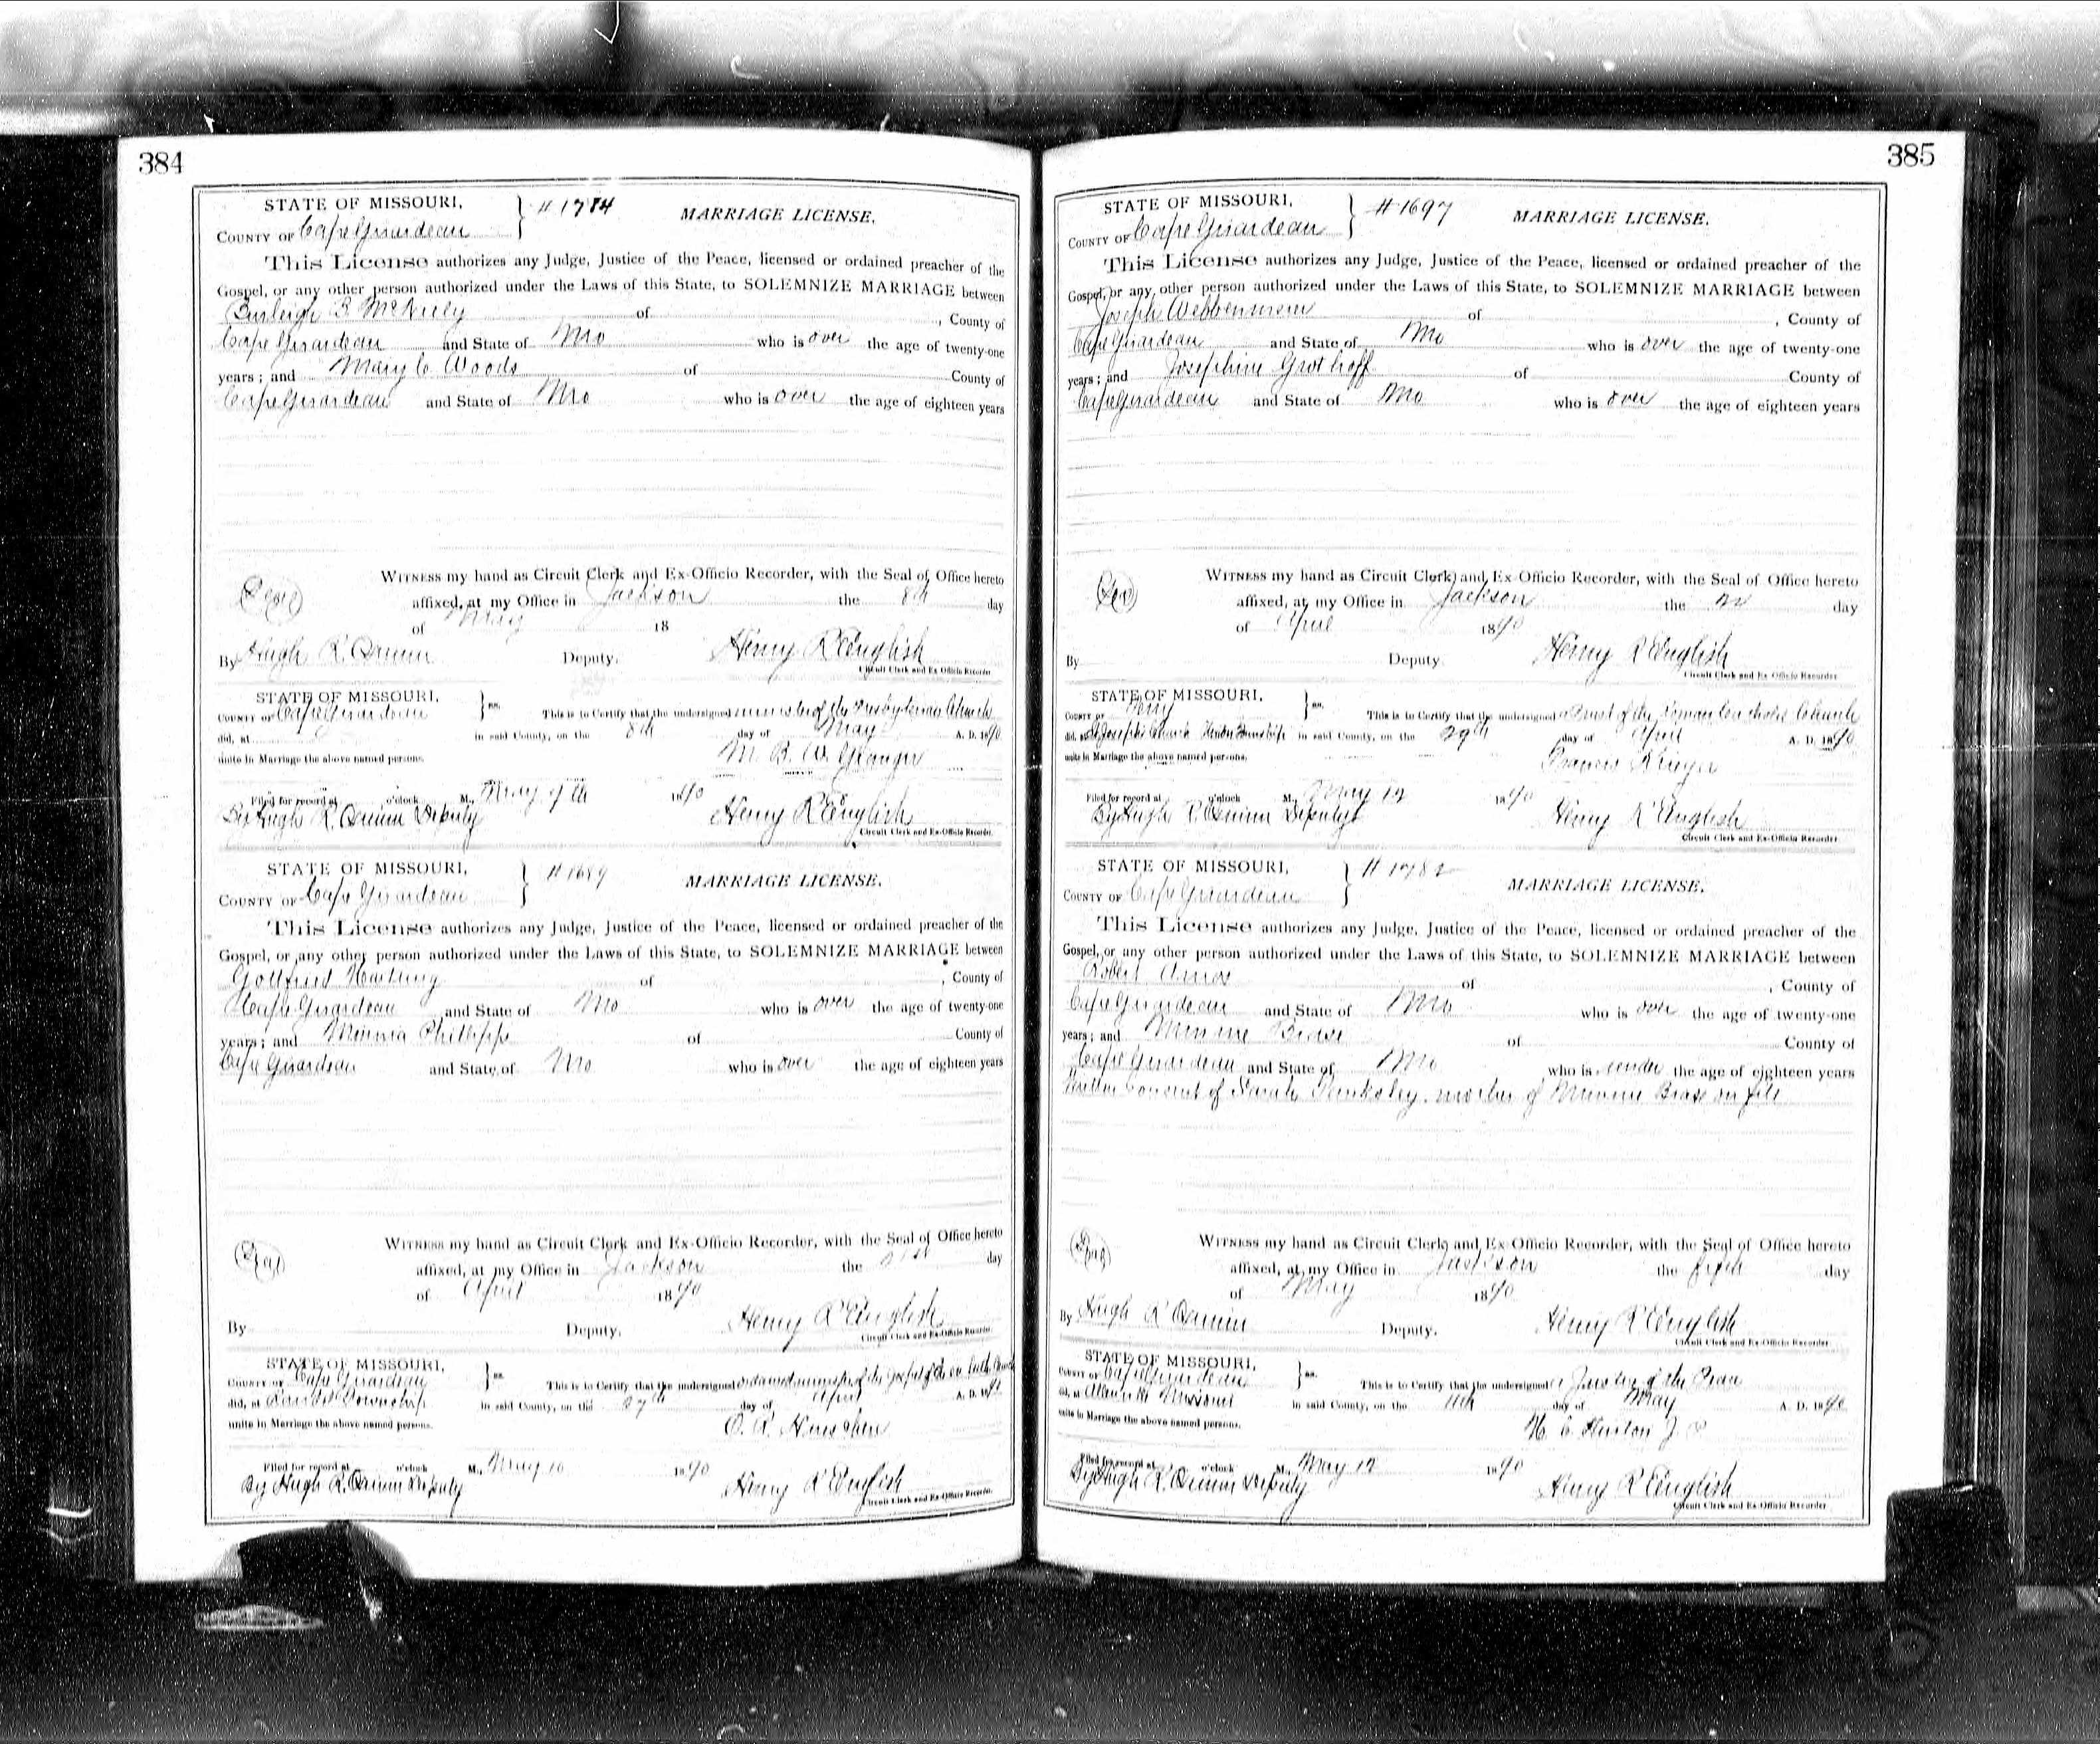 384
STATE OF MISSOURI,
COUNTY OF Cape Girardeau
MARRIAGE LICENSE.
This License authorizes any Judge, Justice of the Peace, licensed or ordained preacher of the
Gospel, or any other person authorized under the Laws of this State, to SOLEMNIZE MARRIAGE between
Burleigh of , County of
Cape Girardeau and State of Mo who is over the age of twenty-one
years; and Mary C Woods of County of
Cape Girardeau and State of Mo who is over the age of eighteen years
WITNESS my hand as Circuit Clerk and Ex-Officio Recorder, with the Seal of Office hereto
affixed, at my Office in Jackson the 8th day
of May 18
By Hugh R. Deputy. Henry R English
Circuit Clerk and Ex-Officio Recorder
STATE OF MISSOURI,
COUNTY OF Cape Girardeau ss. This is to Certify that the undersigned minister of the Presbyterian Church
did, at in said County, on the 8th day of May A. D. 1890
unite in Marriage the above named persons. M. B. W. Granger
Filed for record at o'clock M., May 9th 1890
By Hugh R. Deputy Henry R English
Circuit Clerk and Ex-Officio Recorder.
STATE OF MISSOURI, #1689
COUNTY OF Cape Girardeau
MARRIAGE LICENSE.
This License authorizes any Judge, Justice of the Peace, licensed or ordained preacher of the
Gospel, or any other person authorized under the Laws of this State, to SOLEMNIZE MARRIAGE between
Gottfried Hartung of , County of
Cape Girardeau and State of Mo who is over the age of twenty-one
years; and Phillipps of County of
Cape Girardeau and State of Mo who is over the age of eighteen years
WITNESS my hand as Circuit Clerk and Ex-Officio Recorder, with the Seal of Office hereto
affixed, at my Office in Jackson the day
of April 1890
By Deputy. Henry R English
Circuit Clerk and Ex-Officio Recorder.
STATE OF MISSOURI,
COUNTY OF Cape Girardeau ss. This is to Certify that the undersigned ordained minister of the Gospel of the Church
did, at Township in said County, on the 27th day of April A. D. 18
unite in Marriage the above named persons.
Filed for record at o'clock M., May 10 1890
By Hugh R. Deputy Henry R English
Circuit Clerk and Ex-Officio Recorder.
385
STATE OF MISSOURI, #1697
COUNTY OF Cape Girardeau
MARRIAGE LICENSE.
This License authorizes any Judge, Justice of the Peace, licensed or ordained preacher of the
Gospel, or any other person authorized under the Laws of this State, to SOLEMNIZE MARRIAGE between
Joseph of , County of
Cape Girardeau and State of Mo who is over the age of twenty-one
years; and Josephine Grothoff of County of
Cape Girardeau and State of Mo who is over the age of eighteen years
WITNESS my hand as Circuit Clerk and Ex-Officio Recorder, with the Seal of Office hereto
affixed, at my Office in Jackson the day
of April 1890
By Deputy. Henry R English
Circuit Clerk and Ex Officio Recorder
STATE OF MISSOURI,
COUNTY OF Perry ss. This is to Certify that the undersigned a Priest of the Roman Catholic Church
did, at St Josephs Church Township in said County, on the 29th day of April A. D. 1890
unite in Marriage the above named persons. Francis Krieger
Filed for record at o'clock M., May 12 1890
By Hugh R. Deputy Henry R English
Circuit Clerk and Ex-Officio Recorder
STATE OF MISSOURI, #1782
COUNTY OF Cape Girardeau
MARRIAGE LICENSE.
This License authorizes any Judge, Justice of the Peace, licensed or ordained preacher of the
Gospel, or any other person authorized under the Laws of this State, to SOLEMNIZE MARRIAGE between
Robert Amos of , County of
Cape Girardeau and State of Mo who is over the age of twenty-one
years; and Minnie Brase of County of
Cape Girardeau and State of Mo who is under the age of eighteen years
Written Consent of Sarah mother of Minnie Brase on file
WITNESS my hand as Circuit Clerk and Ex-Officio Recorder, with the Seal of Office hereto
affixed, at my Office in Jackson the fifth day
of May 1890
By Hugh R Deputy. Henry R English
Circuit Clerk and Ex-Officio Recorder
STATE OF MISSOURI,
COUNTY OF Cape Girardeau ss. This is to Certify that the undersigned a Justice of the Peace
did, at Allenville Missouri in said County, on the 11th day of May A. D. 1890
unite in Marriage the above named persons. Hinton J P
Filed for record at o'clock M., May 12 1890
By Hugh R. Deputy Henry R English
Circuit Clerk and Ex-Officio Recorder